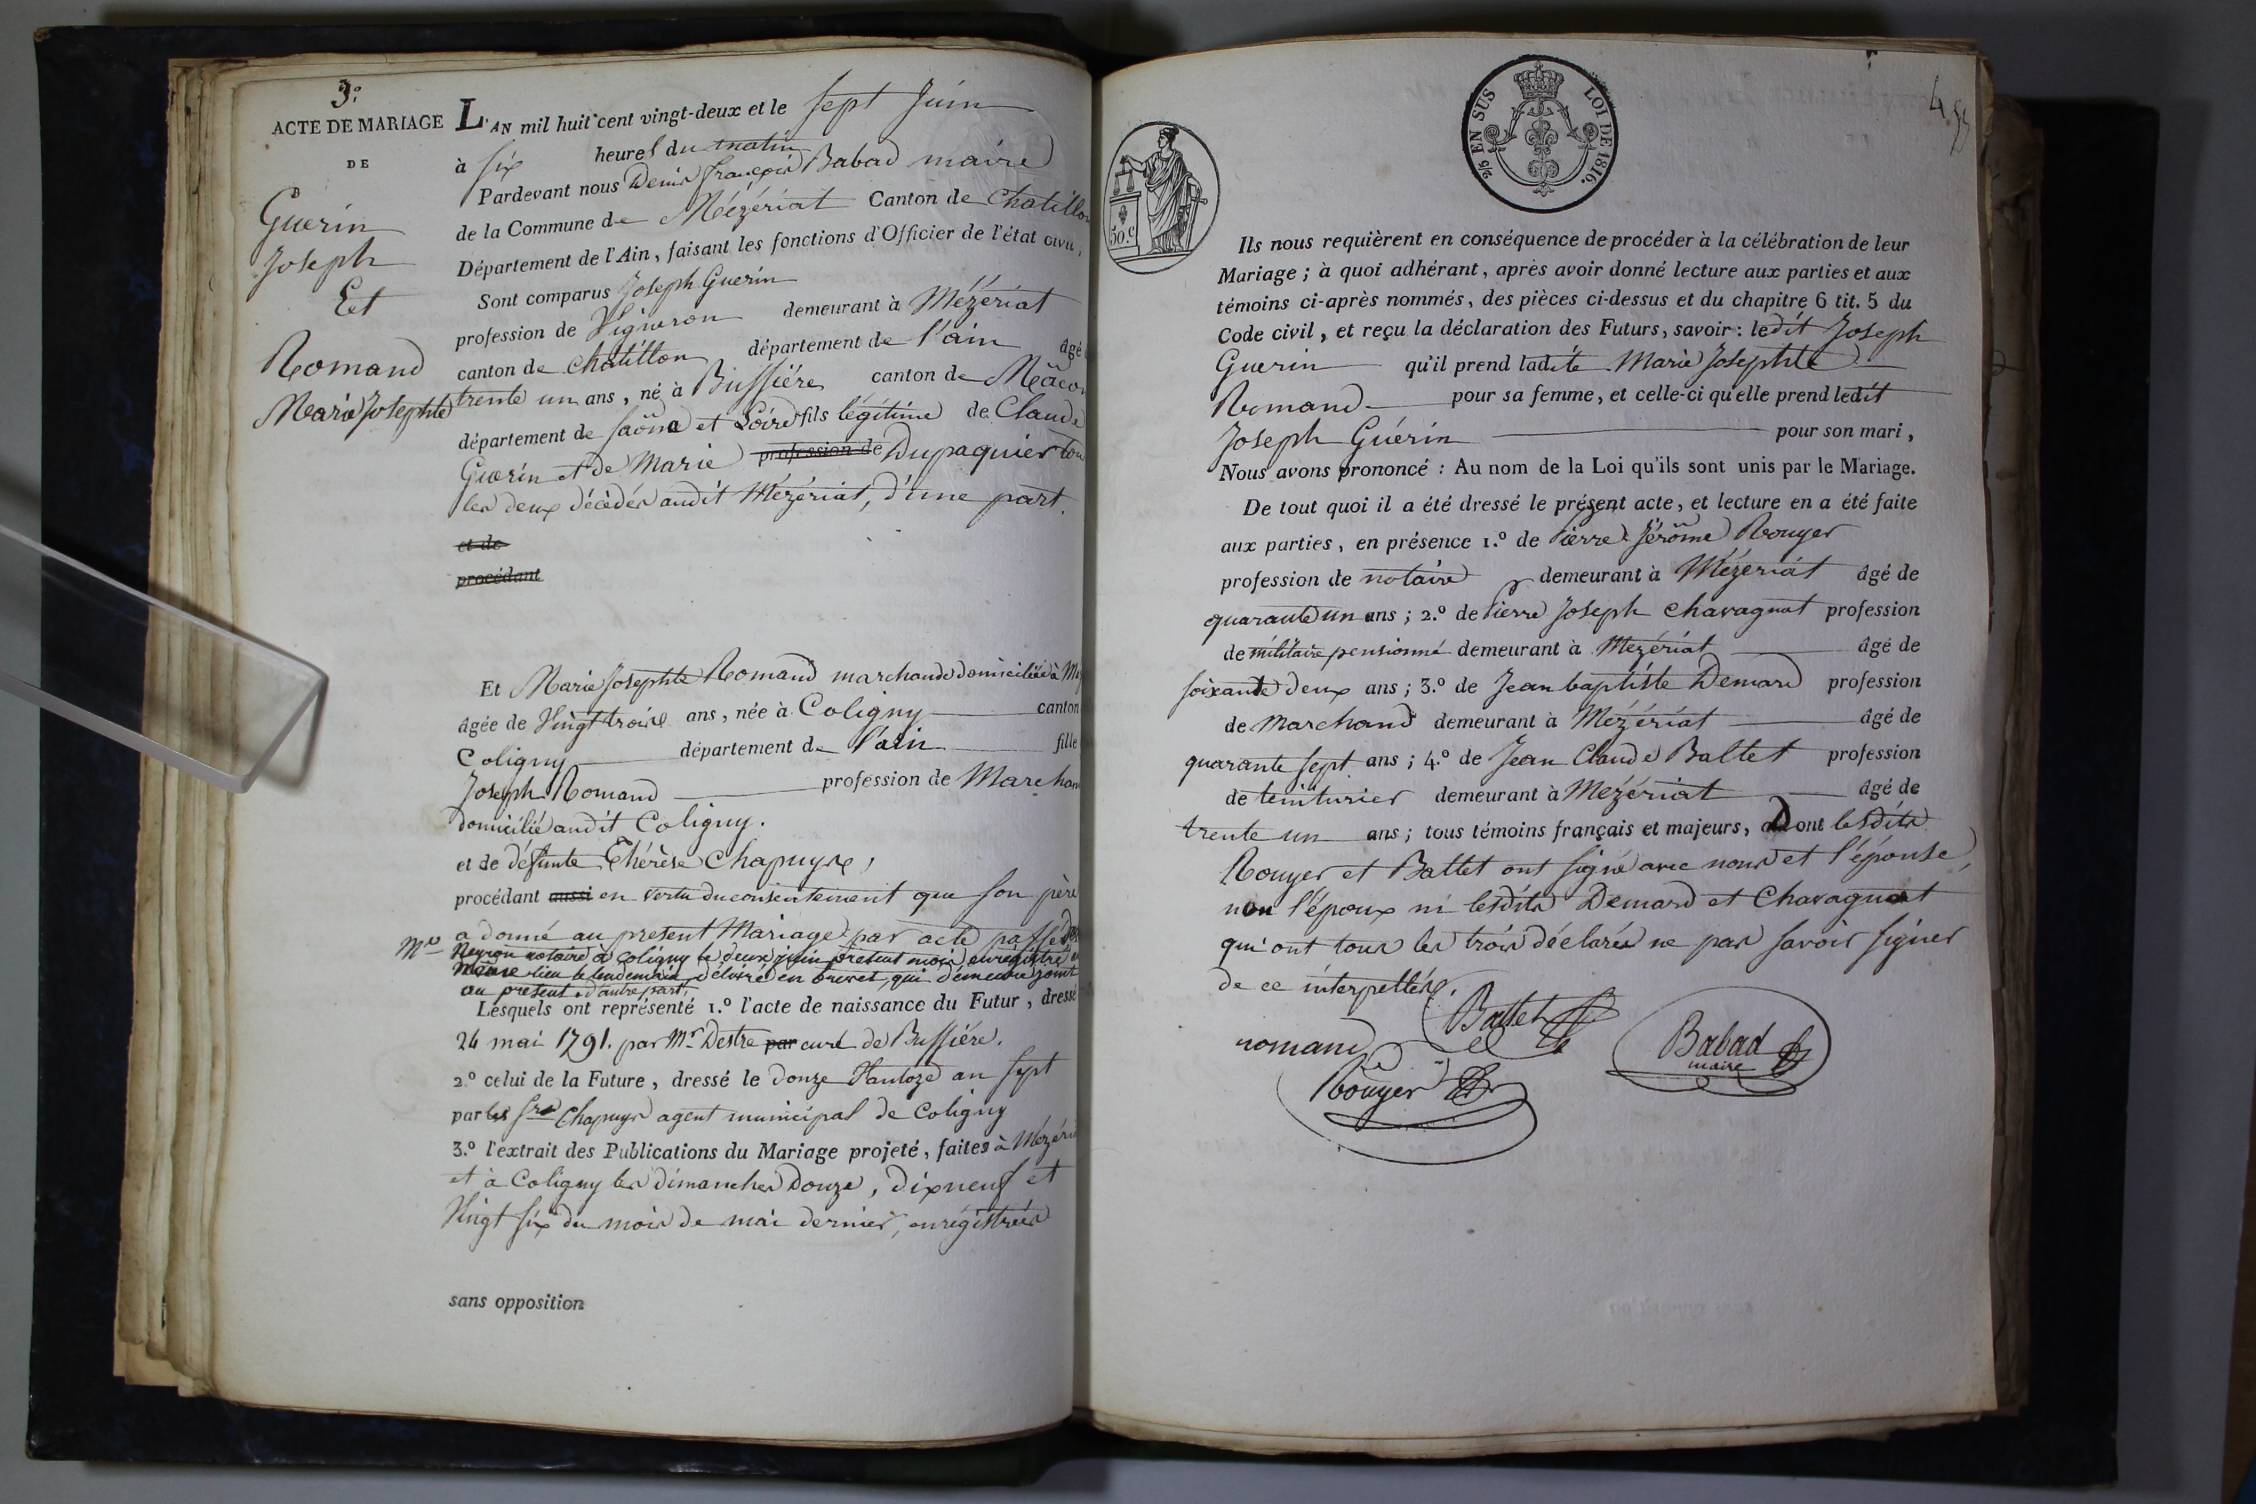 3.°
ACTE DE MARIAGE
DE
Guerin
Joseph
Et
Romand
Marie Josephte
L'AN mil huit cent vingt-deux et le sept Juin
à six heures du matin
Pardevant nous Denis françois Babad maire
de la Commune de Mézériat Canton de Chatillon
Département de l'Ain, faisant les fonctions d'Officier de l'état civil,
Sont comparus Joseph Guerin
profession de Vigneron demeurant à Mézériat
canton de Chatillon département de l'ain âgé
trente un ans, né à Bussiére canton de Mâcon
département de saône et Loire fils légitime de Claude
Guerin et de Marie profession de Dupaquier tou
les deux décédés audit Mézériat, d'une part.
et de
procédant
Et Marie Josephte Romand marchande domiciliée à Me
âgée de Vingt trois ans, née à Coligny canton
Coligny département de l'ain fille
Joseph Romand profession de Marchan
domicilié audit Coligny.
et de défunte Thérèse Chapuys,
procédant aussi en vertu du consentement que son père
a donné au present Mariage par acte passé des
Me Neyron notaire à Coligny le deux juin present mois enregistré
même lieu le lendemain délivré en brevet, qui demeure joint
au present, d'autre part.
Lesquels ont représenté 1.° l'acte de naissance du Futur, dressé
24 mai 1791. par Mr Destre par curé de Bussiére.
2.° celui de la Future, dressé le donze Vantoze an sept
par les sr Chapuys agent municipal de Coligny
3.° l'extrait des Publications du Mariage projeté, faites à Mézéri
et à Coligny les dimanches Douze, Dixneuf et
Vingt six du mois de mai dernier, enrégistrées
sans opposition
2/5 EN SUS LOI DE 1816.
50.c
Ils nous requièrent en conséquence de procéder à la célébration de leur
Mariage; à quoi adhérant, après avoir donné lecture aux parties et aux
témoins ci-après nommés, des pièces ci-dessus et du chapitre 6 tit. 5 du
Code civil, et reçu la déclaration des Futurs, savoir: ledit Joseph
Guerin qu'il prend ladite Marie Josephte
Romand pour sa femme, et celle-ci qu'elle prend ledit
Joseph Guérin pour son mari,
Nous avons prononcé: Au nom de la Loi qu'ils sont unis par le Mariage.
De tout quoi il a été dressé le présent acte, et lecture en a été faite
aux parties, en présence 1.° de Pierre Jérôme Rouyer
profession de notaire demeurant à Mézériat âgé de
quarante un ans; 2.° de Pierre Joseph Chavagnat profession
de militaire pensionné demeurant à Mézériat âgé de
soixante deux ans; 3.° de Jean baptiste Demard profession
de Marchand demeurant à Mézériat âgé de
quarante sept ans; 4.° de Jean Claude Battet profession
de teinturier demeurant à Mézériat âgé de
trente un ans; tous témoins français et majeurs, Dont lesdits
Rouyer et Battet ont signé avec nous et l'épouse,
non l'époux ni lesdits Demard et Chavagnat
qui ont tous les trois déclarés ne pas savoir signer
de ce interpellés.
romand
Battet
Rouyer
Babad
maire